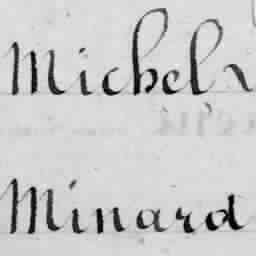 Michel
Minard